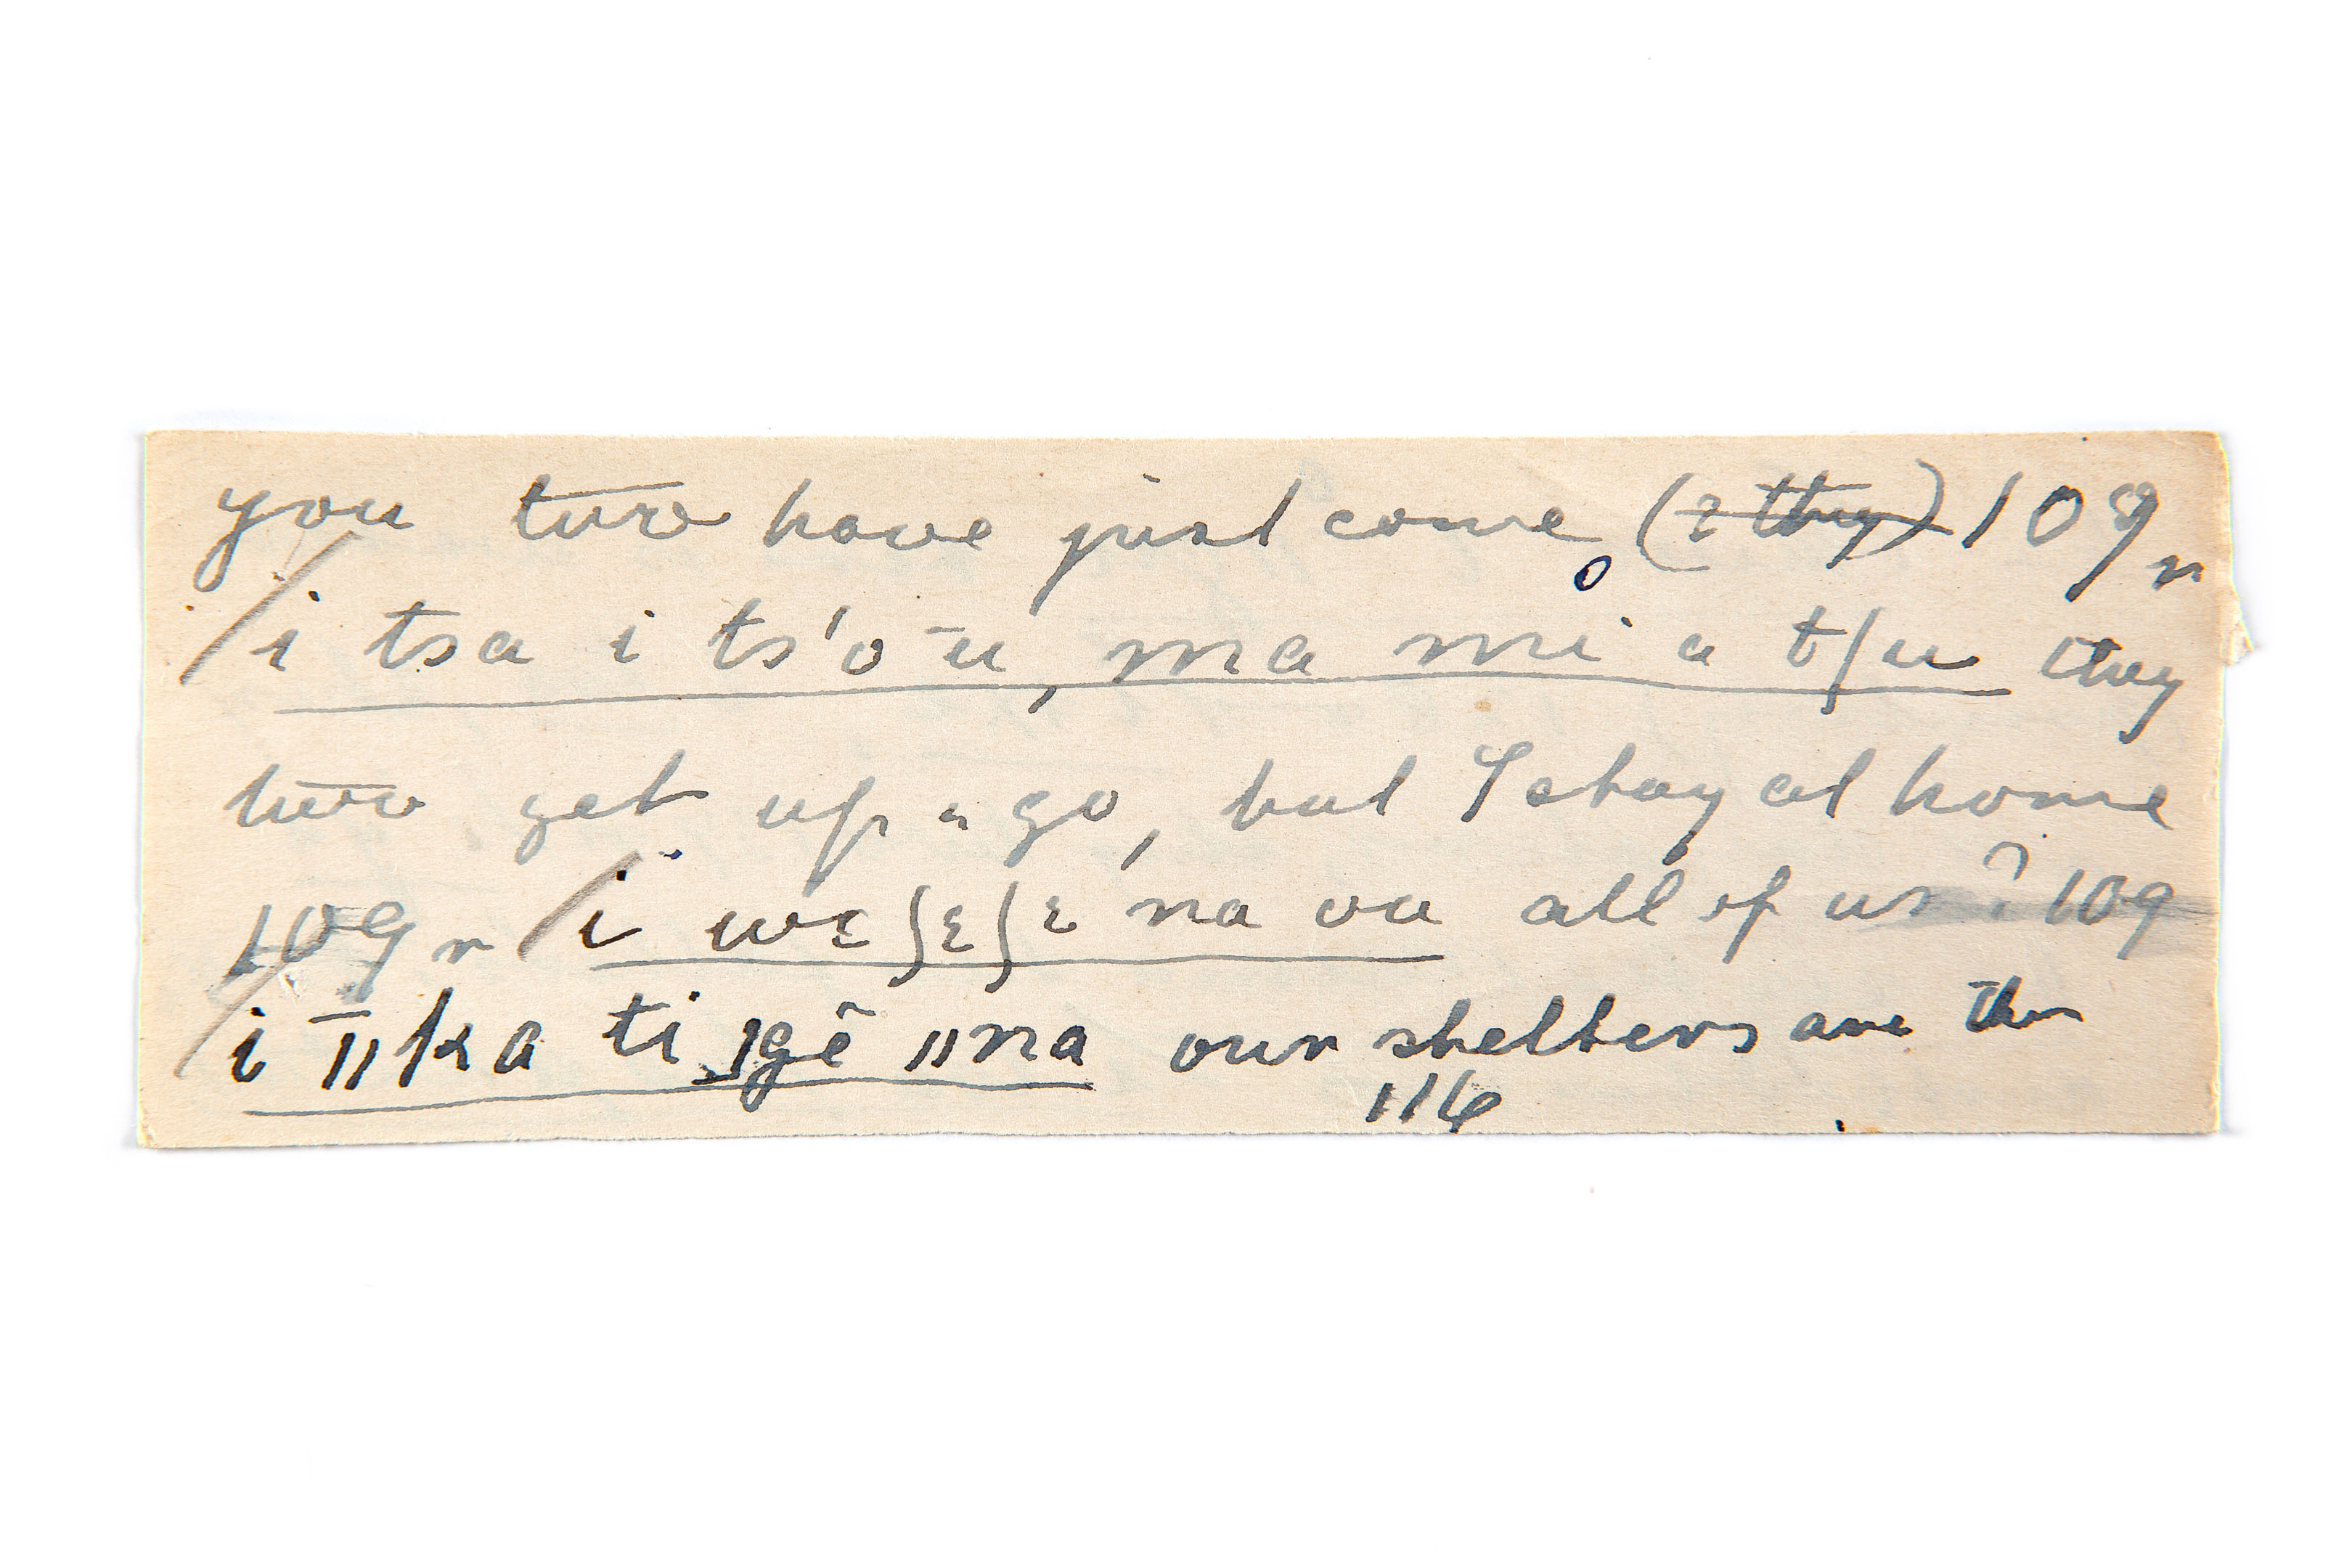 you two have just come (2 they) 109r
/i tsa i ts'o ū, ma mi a t/u they
two get up & go, but I stay at home
109r /i wɛʃɛʃɛ na ou all of us? 109
/i ǁka ti ǀgẽ ǁna our shelters are there
116